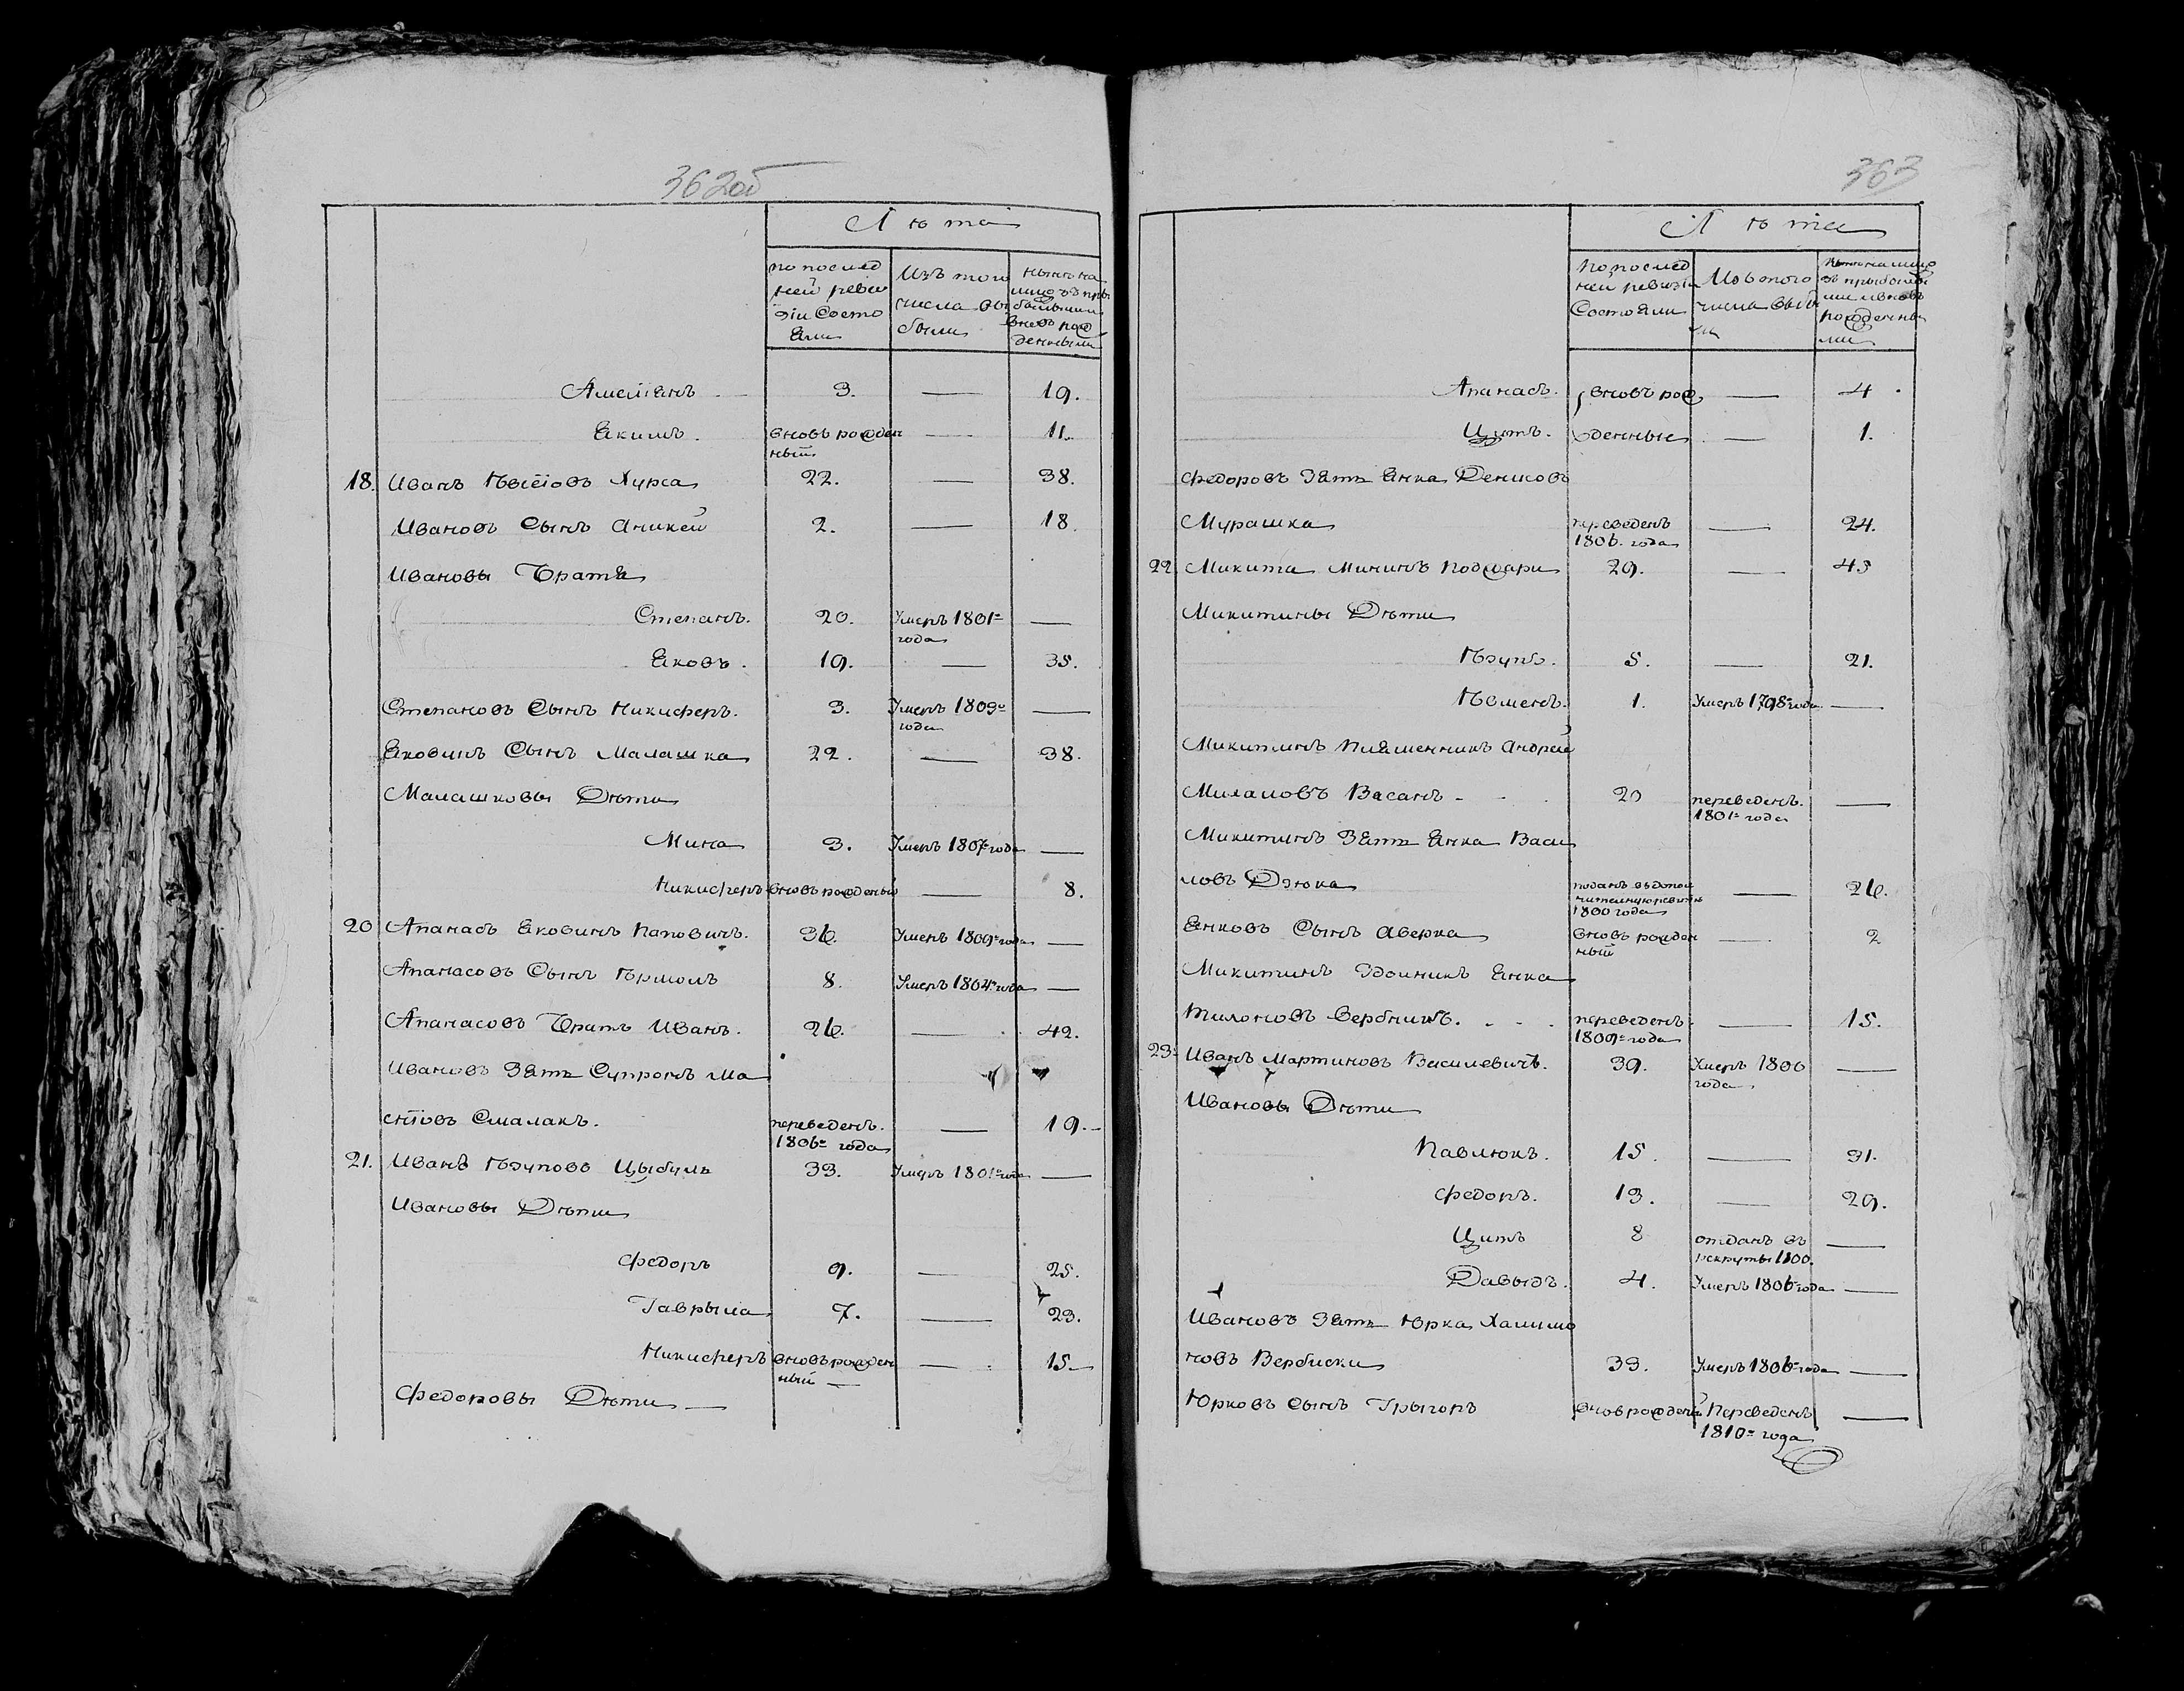 362об
Лѣта
по послед
ней реви
зіи Состо
яли
Изъ того
числа вы
были
ныне на
лицо съ при
бывшими
вновь рож
денными
Амеліянъ 3. — 19.
Якимъ. вновь рожден
ный — 11.
18. Иванъ Хурса 22. — 38.
Ивановъ Сынъ Аникей 2. — 18.
Ивановы Братья
Степанъ. 20. Умеръ 1801
года —
Яковъ. 19. — 35.
Степановъ Сынъ Никиферъ. 3. Умеръ 1809
года —
Яковинъ Сынъ Малашка 22. — 38.
Малашковы Дѣти
Мина 3. Умеръ 1807 года —
Никиферъ вновь рожденый — 8.
20 Апанасъ Яковинъ Паповичъ. 36. Умеръ 1809 года —
Апанасовъ Сынъ Ермолъ 8. Умеръ 1804 года —
Апанасовъ Братъ Иванъ. 26. — 42.
Ивановъ Зять Супронъ Ма
Смалакъ. переведенъ.
1806 года — 19.
21. Иванъ Цыбуль 33. Умеръ 1801 года —
Ивановы Дѣти
Федоръ 9. — 25.
Гаврыла 7. — 23.
Никиферъ вновь рожден
ный — 15
Федоровы Дѣти
363
Лѣта
По послед
ней ревизіи
Состояли
Изъ того
числа выбы
ли
ныне на лицо
съ прибывши
ми и вновь
рожденны
ми
Апанасъ. вновь рож — 4
Цитъ. денные — 1.
Федоровъ Зять Янка Денисовъ
Мурашка переведенъ
1806. года — 24.
22. Микита Мининъ Подшари 29. — 45
Микитины Дѣти
5. — 21.
1. Умеръ 1798 года —
Микитинъ Племенникъ Андрей
Милановъ Васанъ 20 переведенъ.
1801 года —
Микитинъ Зять Янка Васи
ловъ Дзюка поданъ въ допол
нительную ревизію
1800 года — 26.
Янковъ Сынъ Аверка вновь рожден
ный — 2
Микитинъ Здольникъ Янка
Вербицкъ. переведенъ
1809 года — 15.
23. Иванъ Мартиновъ Василевичъ. 39. Умеръ 1800
года —
Ивановы Дѣти
Павлюкъ. 15. — 31.
Федоръ. 13. — 29.
Цитъ 8 отданъ въ
рекруты 1800. —
Давыдъ. 4. Умеръ 1806 года —
Ивановъ Зять Юрка Халимо
новъ Вербиски 33. Умеръ 1806 года —
Юрковъ Сынъ Грыгоръ вновь рожденый Переведенъ
1810 года —